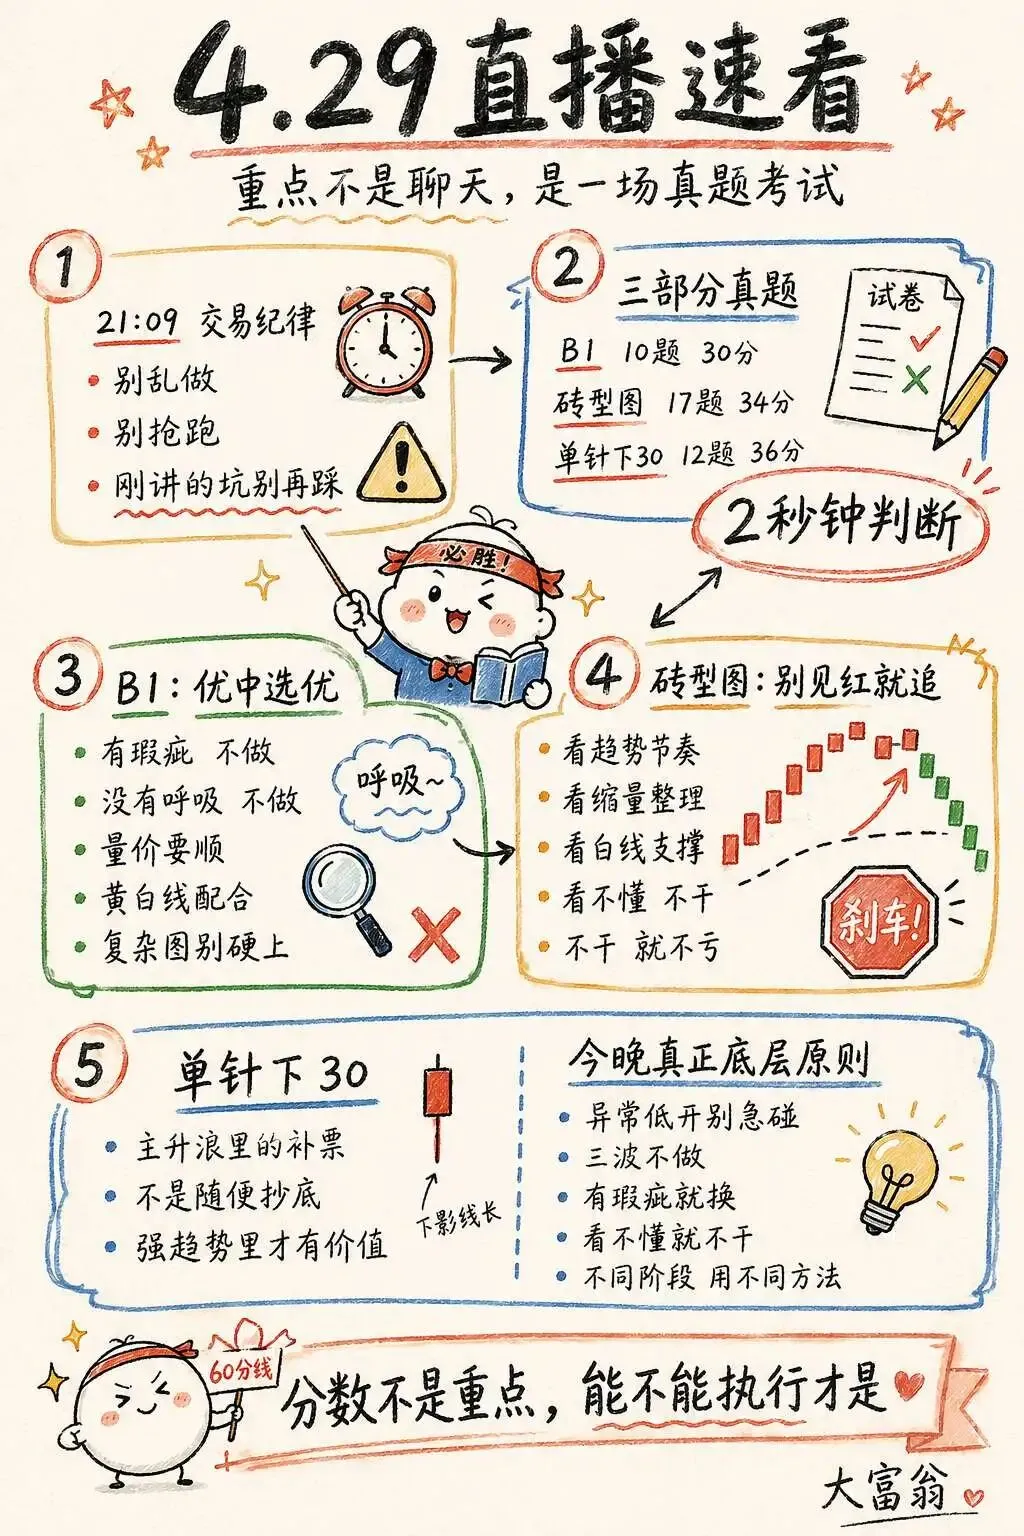 4.29直播速看
重点不是聊天，是一场真题考试
1
21:09 交易纪律
• 别乱做
• 别抢跑
• 刚讲的坑别再踩
2
三部分真题
B1 10题 30分
砖型图 17题 34分
单针下30 12题 36分
试卷
2秒钟判断
必胜！
3
B1：优中选优
• 有瑕疵 不做
• 没有呼吸 不做
• 量价要顺
• 黄白线配合
• 复杂图别硬上
呼吸~
4
砖型图：别见红就追
• 看趋势节奏
• 看缩量整理
• 看白线支撑
• 看不懂 不干
• 不干 就不亏
刹车！
5
单针下30
• 主升浪里的补票
• 不是随便抄底
• 强趋势里才有价值
下影线长
今晚真正底层原则
• 异常低开别急碰
• 三波不做
• 有瑕疵就换
• 看不懂就不干
• 不同阶段 用不同方法
60分线
分数不是重点，能不能执行才是
大富翁